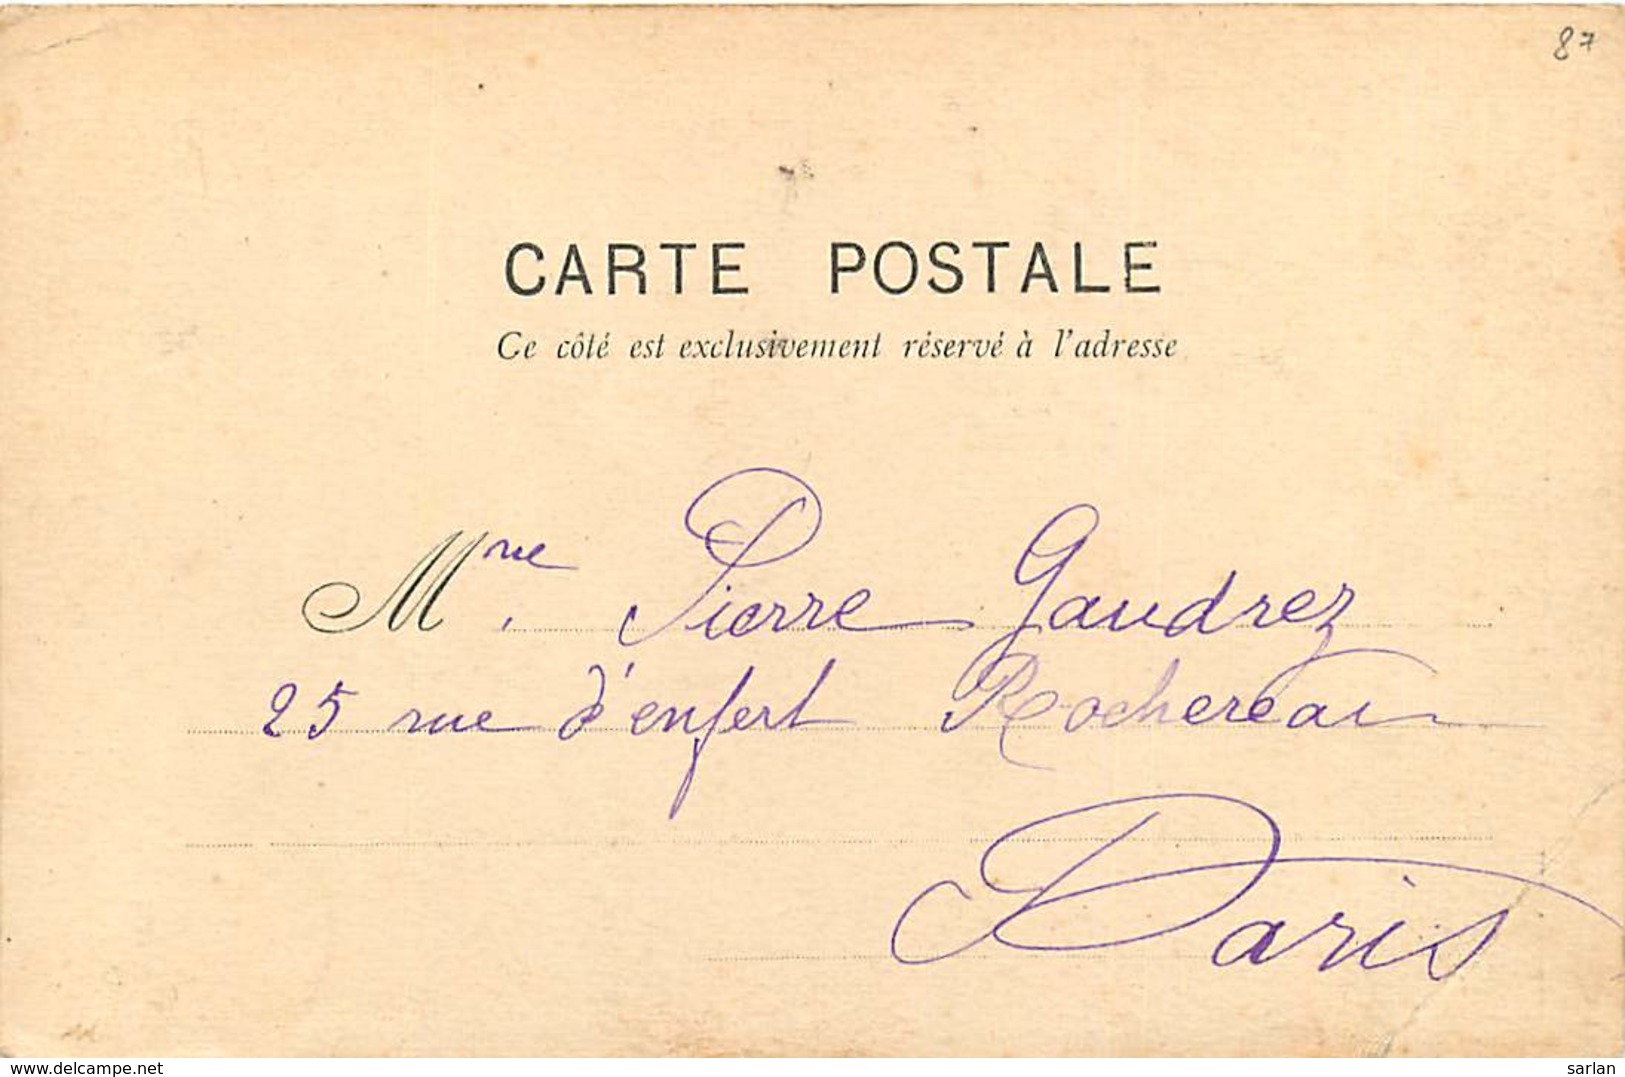 87
CARTE POSTALE
Ce côté est exclusivement réservé à l'adresse
Mme Pierre Gaudrez
25 rue d'enfert Rochereau
Paris
www.delcampe.net
sarlan